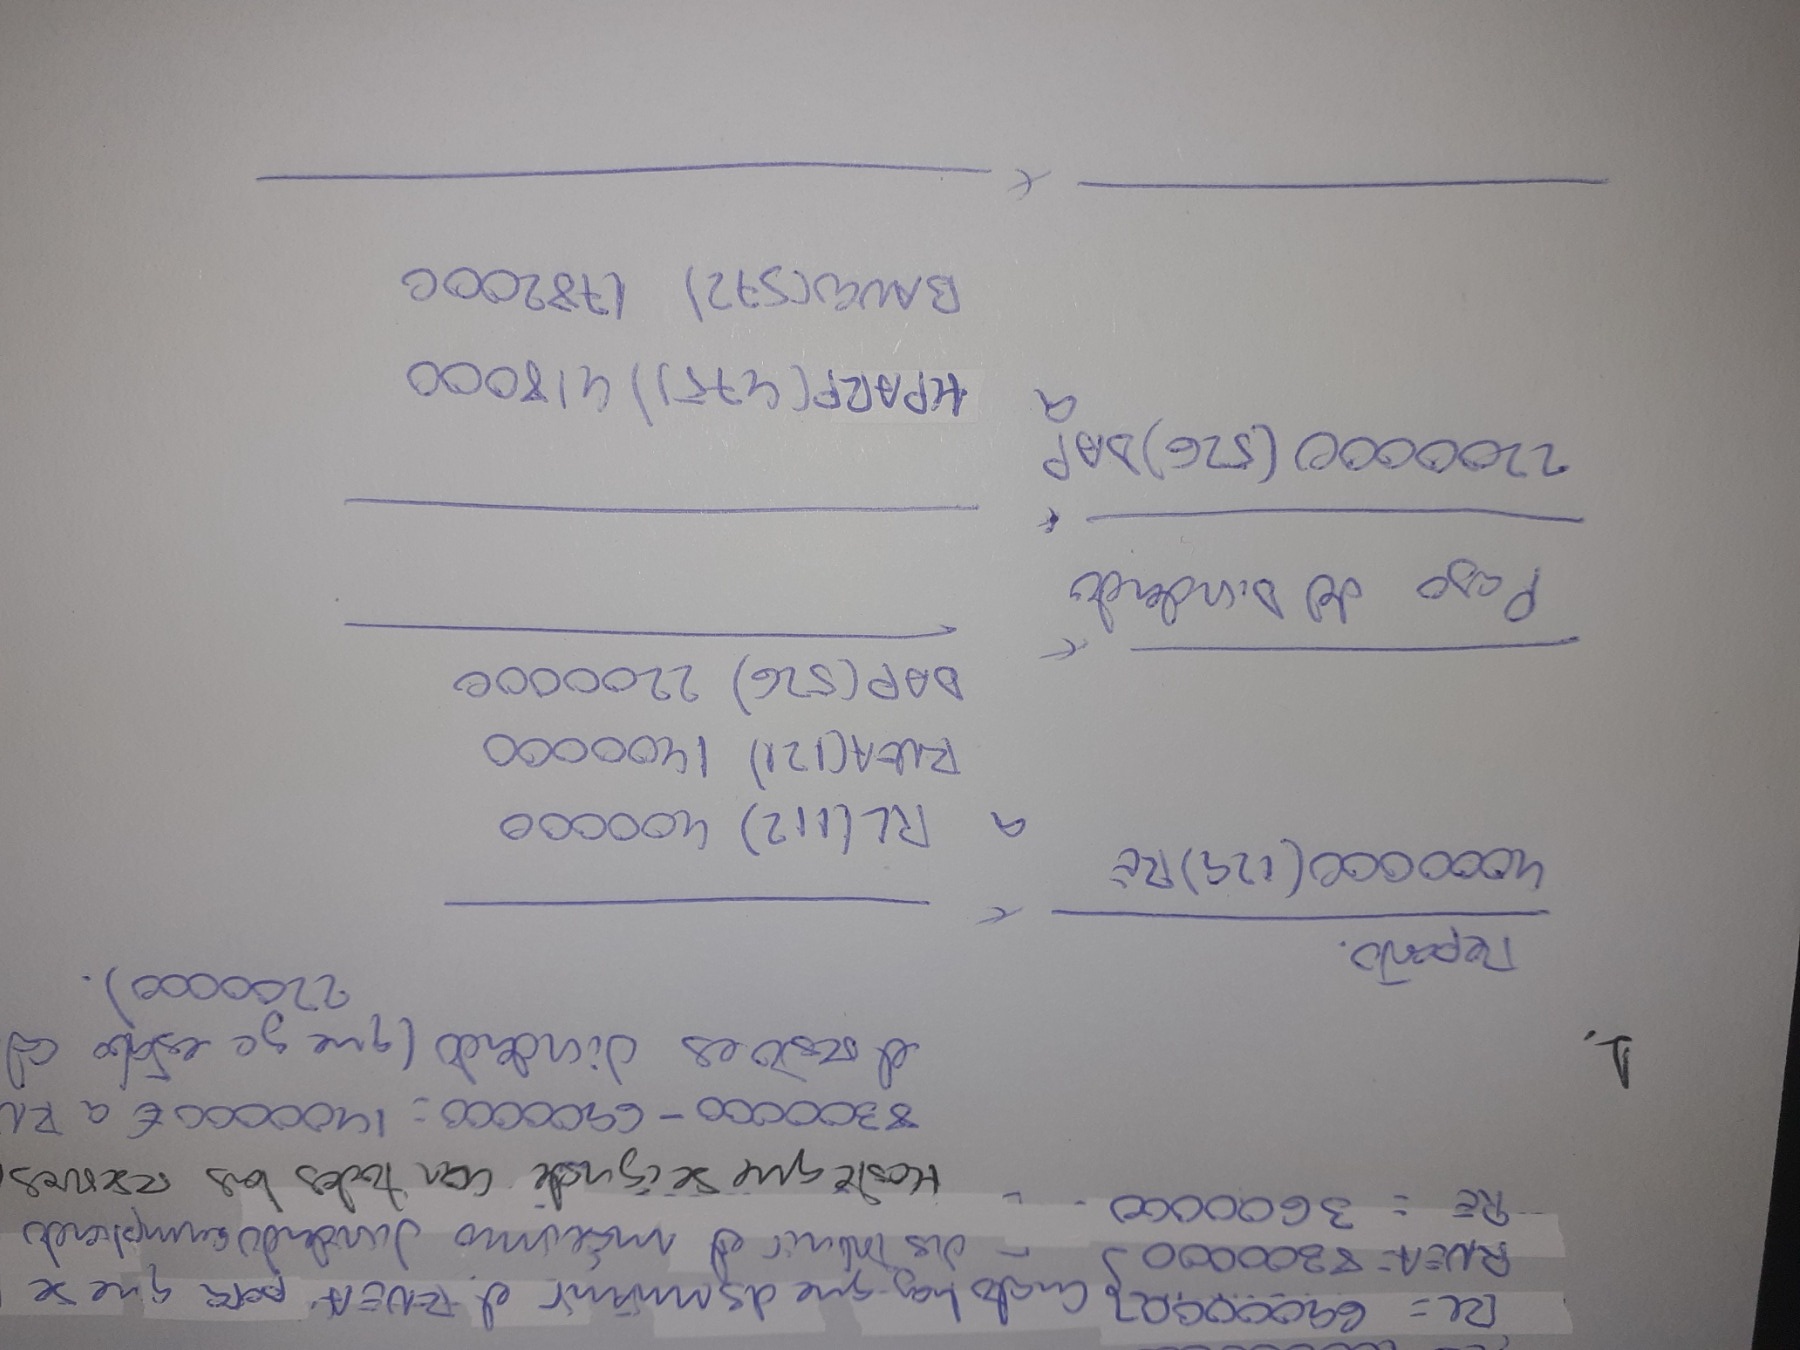 RL = 6900000 Cuanto hay que disminuir el RNEA para que se
RNEA = 8300000 - distribuir el máximo dividendo cumpliendo
RE = 3600000 - Hasta que se iguale con todas las reservas
8300000 - 6900000 = 1400000€ a RN
el resto es dividendo (que se
2200000).
1.
Reparto.
4000000 (129) RE
a RL (112) 400000
RNEA (121) 1400000
DAP (526) 2200000
Pago del Dividendo
2200000 (526) DAP
a HPARF (4751) 418000
Banco (572) 1782000